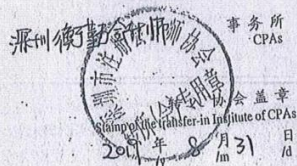 深圳
事务所
CPAs
深圳市注册会计师协会
专用章
协会盖章
Stamp of the transfer-in Institute of CPAs
年 8 月 31 日
/y /m /d